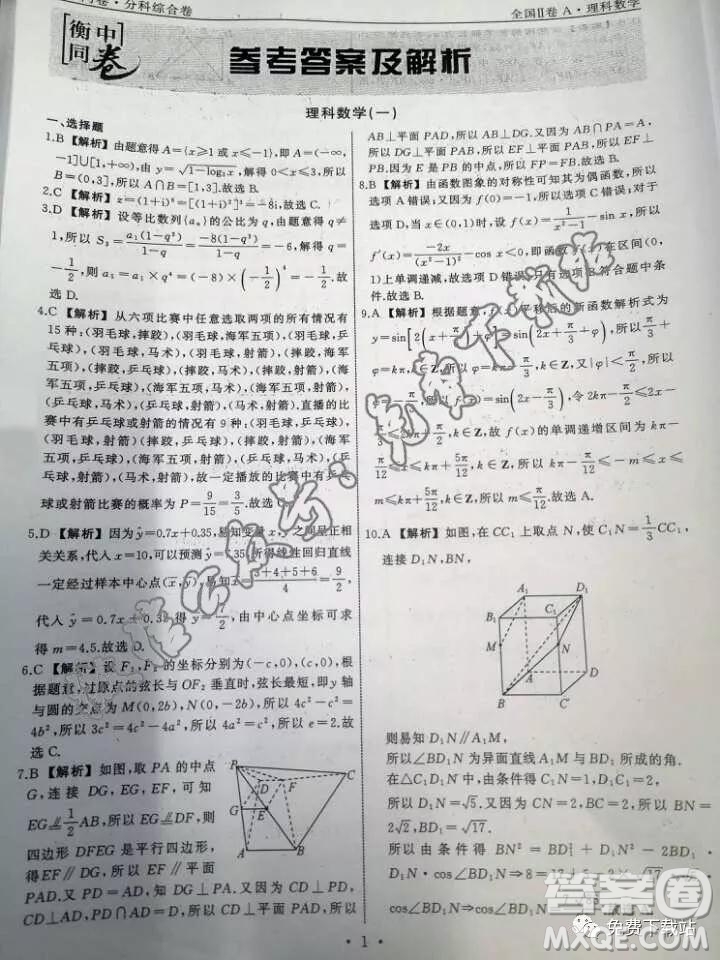 同卷·分科综合卷
全国Ⅱ卷A·理科数学
衡中同卷
参考答案及解析
理科数学(一)
一、选择题
1.B 【解析】由题意得A={x≥1或x≤-1},即A=(-∞,
-1]∪[1,+∞),由y=√(1-log₃x),解得0<x≤3,所以
B=(0,3],所以A∩B=[1,3].故选B.
2.C 【解析】z=(1+i)⁶=[(1+i)²]³=-8i,故选C.
3.D 【解析】设等比数列{aₙ}的公比为q,由题意得q≠
1,所以S₃=a₁(1-q³)/(1-q)=-8(1-q³)/(1-q)=-6,解得q=
-1/2,则a₅=a₁×q⁴=(-8)×(-1/2)⁴=-1/2.故
选D.
4.C 【解析】从六项比赛中任意选取两项的所有情况有
15种:(羽毛球,摔跤),(羽毛球,海军五项),(羽毛球,乒
乓球),(羽毛球,马术),(羽毛球,射箭),(摔跤,海军
五项),(摔跤,乒乓球),(摔跤,马术),(摔跤,射箭),(海
军五项,乒乓球),(海军五项,马术),(海军五项,射箭),
(乒乓球,马术),(乒乓球,射箭),(马术,射箭),直播的比
赛中有乒乓球或射箭的情况有9种:(羽毛球,乒乓
球),(羽毛球,射箭),(摔跤,乒乓球),(摔跤,射箭),
(海军五项,乒乓球),(海军五项,射箭),(乒乓球,马
术),(乒乓球,射箭),(马术,射箭),故一定播放的比赛有乒乓
球或射箭比赛的概率为P=9/15=3/5.故选C.
5.D 【解析】因为ŷ=0.7x+0.35,易知变量x,y之间呈正相
关关系,代入x=10,可以预测ŷ=7.35,所得线性回归直线
一定经过样本中心点(x̄,ȳ),易知x̄=(3+4+5+6)/4=9/2,
代入ŷ=0.7x+0.35得ȳ=7/2,由中心点坐标可求
得m=4.5.故选D.
6.C 【解析】设F₁,F₂的坐标分别为(-c,0),(c,0),根
据题意,过原点的弦长与OF₂垂直时,弦长最短,即y轴
与圆的交点为M(0,2b),N(0,-2b),所以4c²-c²=
4b²,所以3c²=4c²-4a²,所以4a²=c²,所以e=2.故
选C.
7.B 【解析】如图,取PA的中点
G,连接DG,EG,EF,可知
EG∥1/2AB,所以EG∥DF,所以
四边形DFEG是平行四边形,
所以EF∥DG,所以EF∥平面
PAD.又PD∩AD=D,
P
C
D
F
G
E
A
B
AB⊥平面PAD,所以AB⊥DG.又因为AB∩PA=
A,所以DG⊥平面PAB,所以EF⊥平面PAB,所以EF⊥
PB.因为E是PB的中点,所以FP=FB.故选B.
8.B 【解析】由函数图象的对称性可知其为偶函数,所以
选项A错误;又因为x≠±1,所以选项C错误;对于
选项D,当x∈(0,1)时,设f(x)=1/(x²-1)-sin x,所以
f′(x)=-2x/(x²-1)²-cos x<0,即函数f(x)在区间(0,
1)上单调递减,故选项D错误;只有选项B符合题中条
件.故选B.
9.A 【解析】根据题意,f(x)平移后的新函数解析式为
y=sin[2(x+π/6)+φ]=sin(2x+π/3+φ),所以π/3+
φ=kπ,k∈Z,所以φ=kπ-π/3,k∈Z,又|φ|<π/2,所以
φ=-π/3,所以f(x)=sin(2x-π/3),令2kπ-π/2≤2x-
π/3≤2kπ+π/2,k∈Z,故f(x)的单调递增区间为kπ-
π/12≤x≤kπ+5π/12,k∈Z,所以-π/12≤m≤
5π/12,所以m≤π/12.故选A.
10.A 【解析】如图,在CC₁上取点N,使C₁N=1/3CC₁,
连接D₁N,BN,
A₁
D₁
B₁
C₁
M
N
A
D
B
C
则易知D₁N∥A₁M,
所以∠BD₁N为异面直线A₁M与BD₁所成的角.
在△C₁D₁N中,由条件得C₁N=1,C₁D₁=2,
所以D₁N=√5.又因为CN=2,BC=2,所以BN=
2√2,BD₁=√17.
所以由条件得BN²=BD₁²+D₁N²-2BD₁·
D₁N·cos∠BD₁N⇒8=
cos∠BD₁N=
·1·
答案圈
免费下载站
MXQE.COM